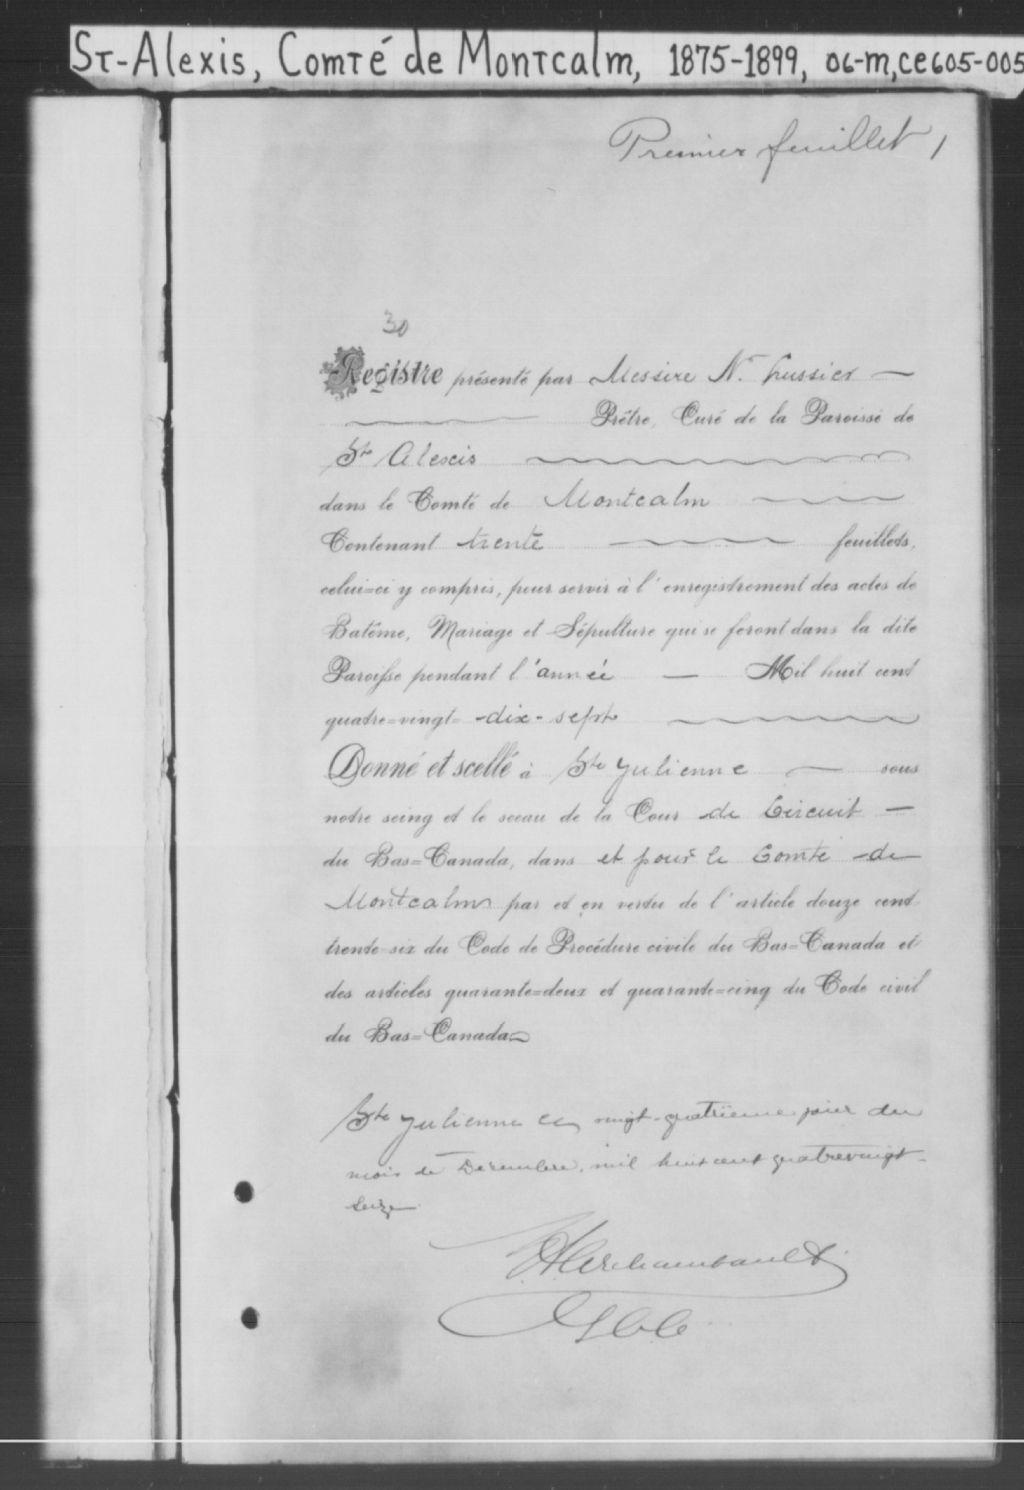 St-Alexis, Comté de Montcalm, 1875-1899, 06-m, ce605-005
Premier feuillet 1
30
Registre présenté par Messire N. Lussier
Prêtre, Curé de la Paroisse de
St Alexis
dans le Comté de Montcalm
Contenant trente feuillets,
celui=ci y compris, pour servir à l'enregistrement des actes de
Batême, Mariage et Sépulture qui se feront dans la dite
Paroisse pendant l'année Mil huit cent
quatre=vingt=dix-sept
Donné et scellé à Ste Julienne sous
notre seing et le sceau de la Cour de Circuit
du Bas=Canada, dans et pour le Comté de
Montcalm par et en vertu de l'article douze cent
trente-six du Code de Procédure civile du Bas=Canada et
des articles quarante=deux et quarante=cinq du Code civil
du Bas=Canada
Ste Julienne ce vingt-quatrième jour du
mois de Décembre, mil huit cent quatrevingt-
seize
Archambault